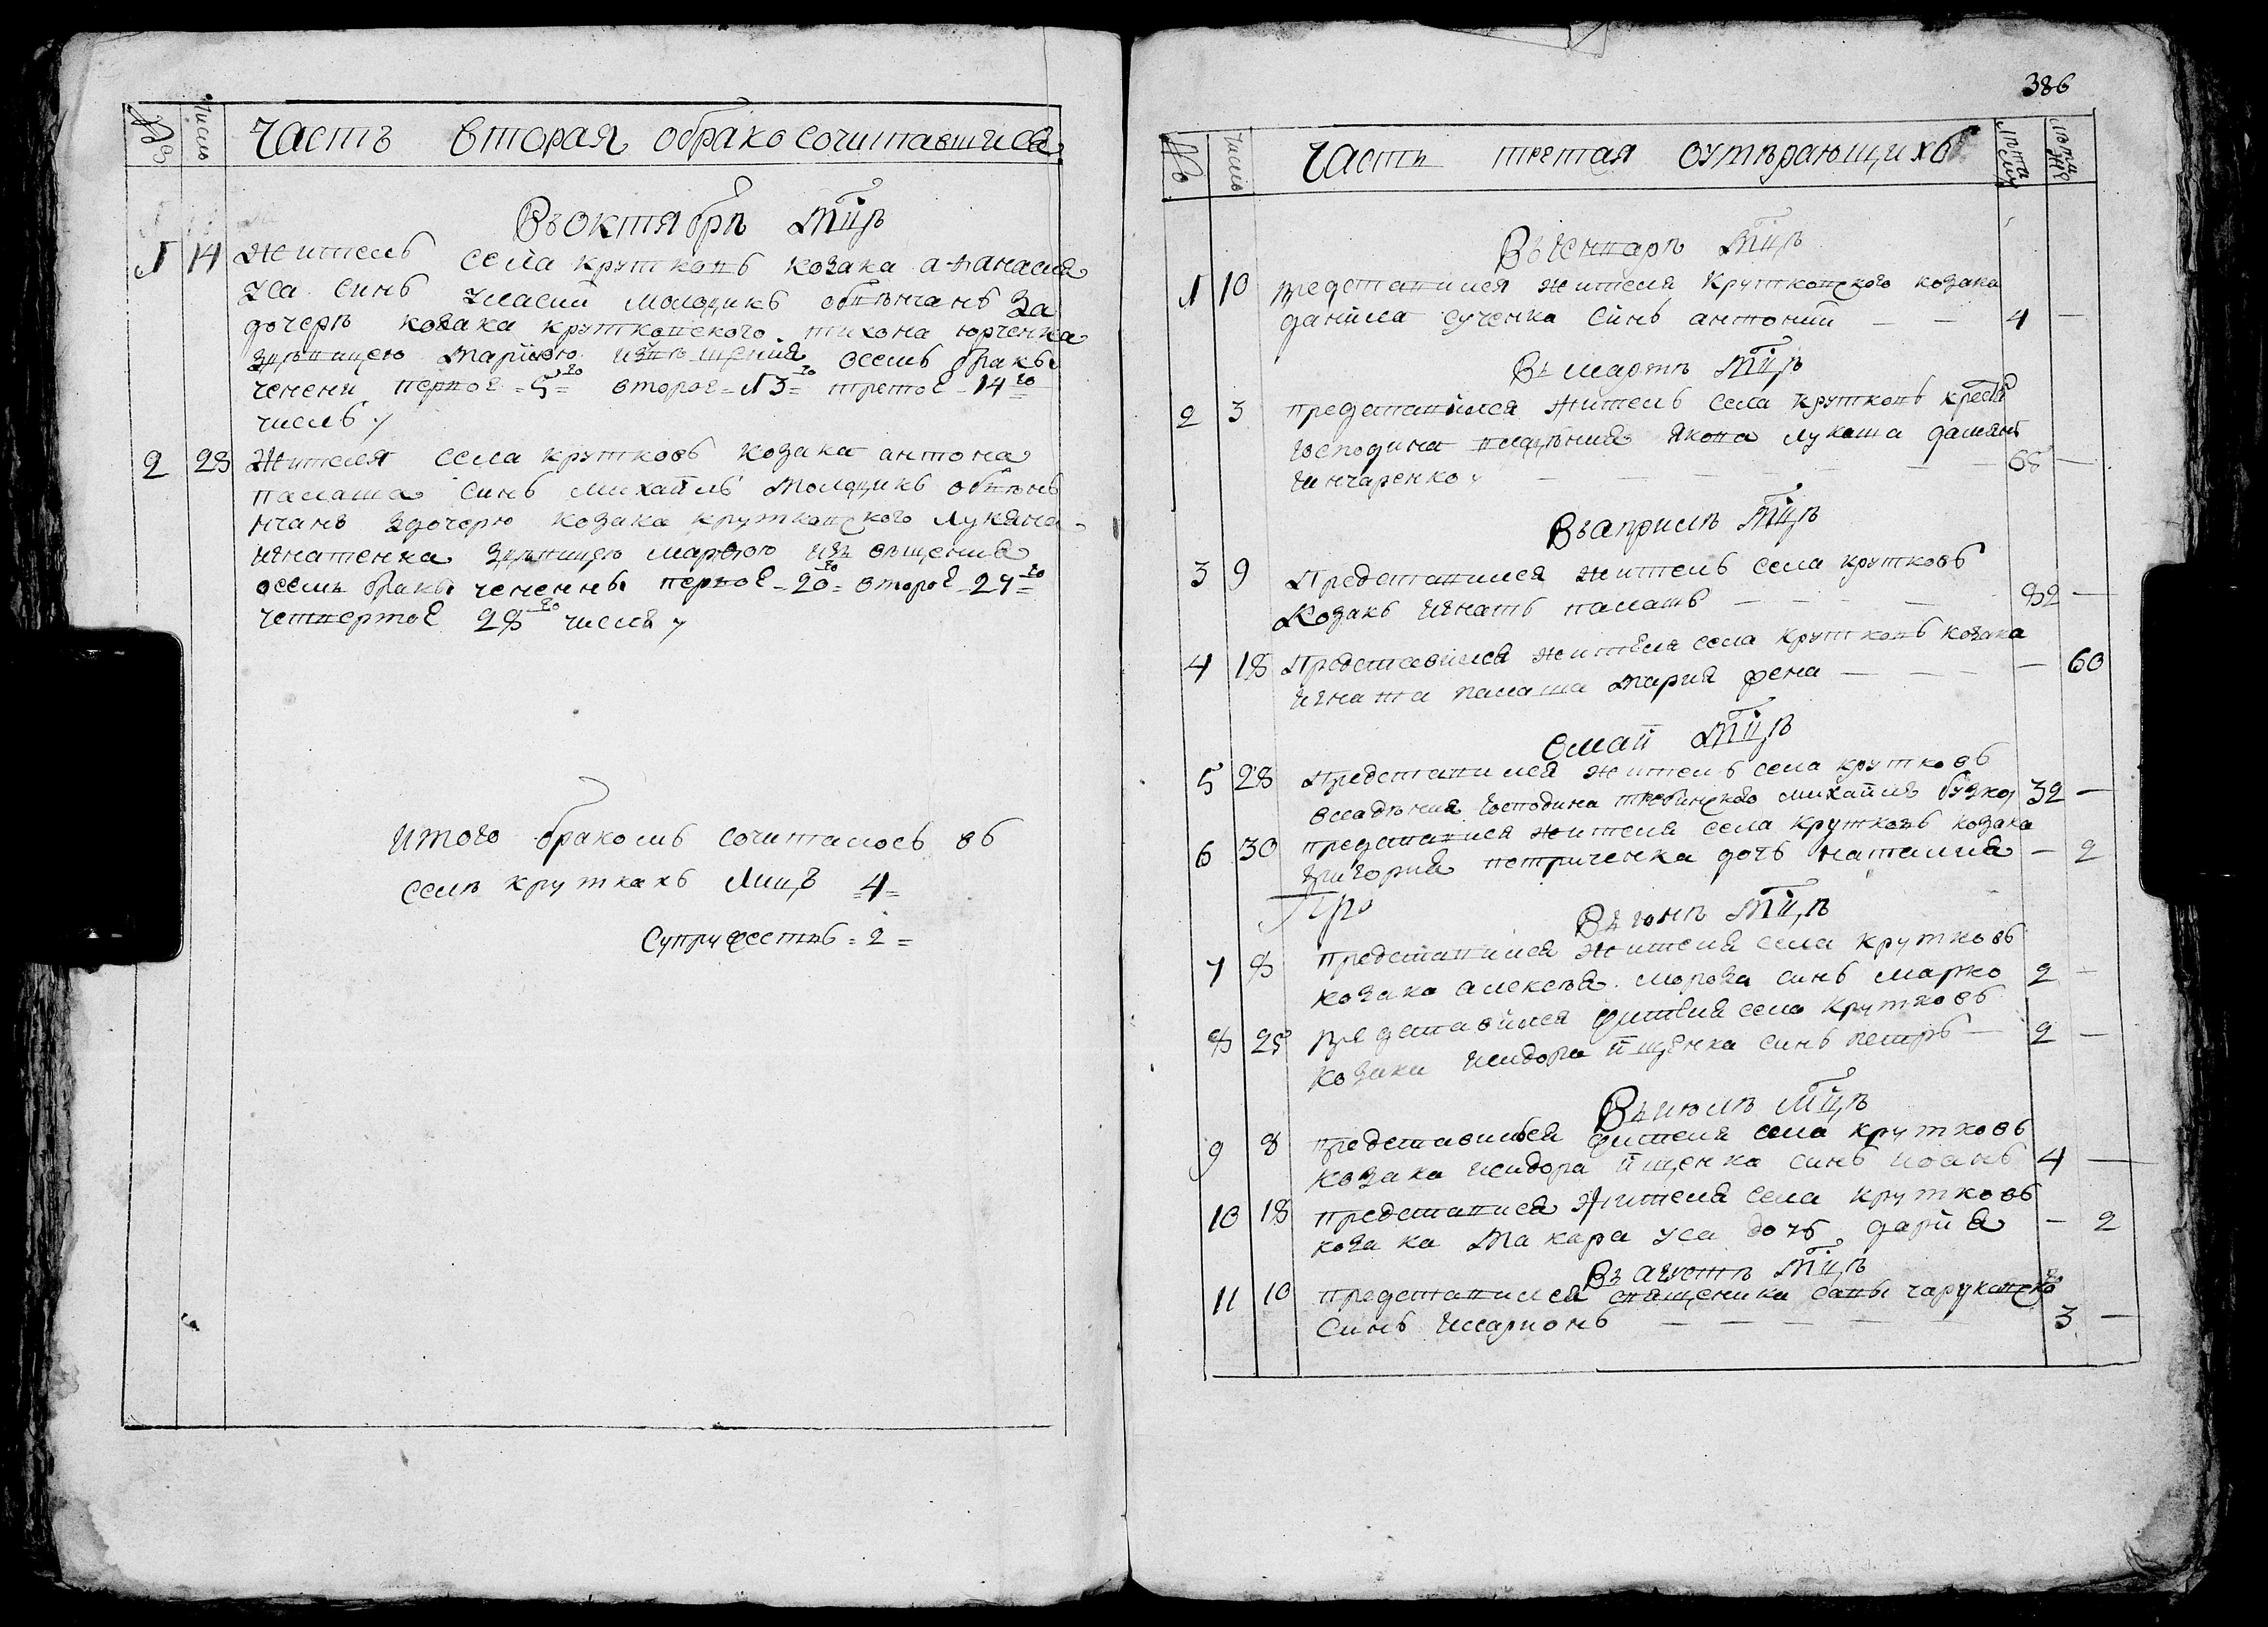 №
Число
Часть вторая обракосочитавшися
Въ октябрѣ мцѣ
1 14 Житель села крутковъ козака афанасия
уса синъ власий молодикъ обвѣнчанъ за
дочерѣ козака крутковского тихона юрченка
здѣвицею мариею извѣщения осемъ бракы
ченени первое =5го= второе =13го= третое =14го=
числъ
2 28 Жителя села крутковъ козака антона
палаша синъ михайлъ молодикъ обвѣнъ
нчанъ здочерю козака крутковского лукяна
игнатенка здѣвицею марфою извѣщения
осемъ бракы ченены первое =20го= второе 24го=
четвертое 28го числа
Итого бракомъ сочиталось въ
селѣ круткахъ лицъ =4=
Супружествъ =2=
386
№
Число
Часть третая оумѣрающихъ
лѣта му
лѣта же
Въ генварѣ мцѣ
1 10 представился жителя крутковского козака
данила сученка синъ антоний — — 4 —
Въ мартѣ мцѣ
2 3 представился житель села крутковъ крестя
господина владѣния якова лукаша дамянъ
гинчаренко — — — — — 68 —
Въ априлѣ мцѣ
3 9 Представился житель села крутковъ
козакъ игнатъ палашъ — — — — 82 —
4 18 Представился жителя села крутковъ козака
игната палаша мария фена — — — — 60
Вмаи мцѣ
5 28 Представился житель села крутковъ
владѣния господина требинского михайлъ бузко 32 —
6 30 представися жителя села крутковъ козака
григория петриченка дочъ наталия — 2
Пре
Въ юнѣ мцѣ
7 8 представился жителя села крутковъ
козака алексѣя мороза синъ марко 2 —
8 25 представился жителя села крутковъ
козака исидора ищенка синъ петръ — 2 —
Въ июлѣ мцѣ
9 8 представился жителя села крутковъ
козака исидора ищенка синъ иоанъ 4 —
10 18 представися жителя села крутковъ
козака макара уса дочъ дария — 2
Въ августѣ мцѣ
11 10 представился священика савы чаруковско го
синъ иларионъ — — — — 3 —